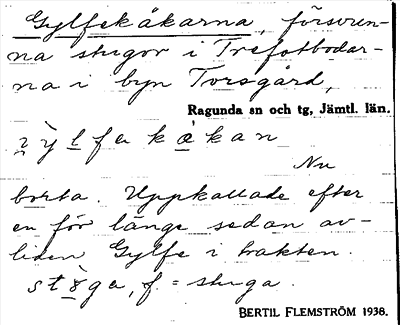 Gylfekåkarna, försvun-
na stugor i Trefotbodar-
na i byn Torsgård,
Ragunda sn och tg, Jämtl. län.
ỳlfekåkan
Nu
borta. Uppkallade efter
en för länge sedan av-
liden Gylfe i trakten.
stöga, f. = stuga.
BERTIL FLEMSTRÖM 1938.